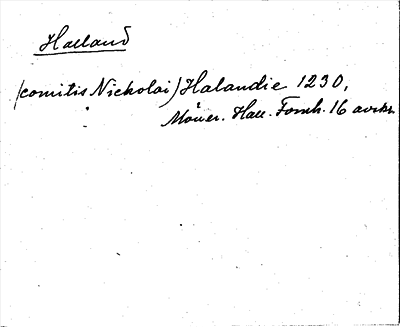 Halland
(comitis Nickolai) Halandie 1230,
Möller. Hall. Fornh. 16 avskr.